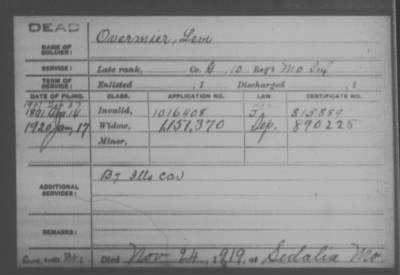 DEAD
NAME OF SOLDIER: Overmier, Levi
SERVICE: Late rank, Co. G, 10 Reg't Mo. Inf
TERM OF SERVICE: Enlisted , 1 Discharged , 1
DATE OF FILING. CLASS. APPLICATION NO. LAW. CERTIFICATE NO.
1907 27
1891 14 Invalid, 1016408 815889
1920 Jan 17 Widow, 1151,370 Dep. 890225
Minor,
ADDITIONAL SERVICES: B 7 Ills Cav
REMARKS:
Died Nov 24, 1919, at Sedalia Mo.